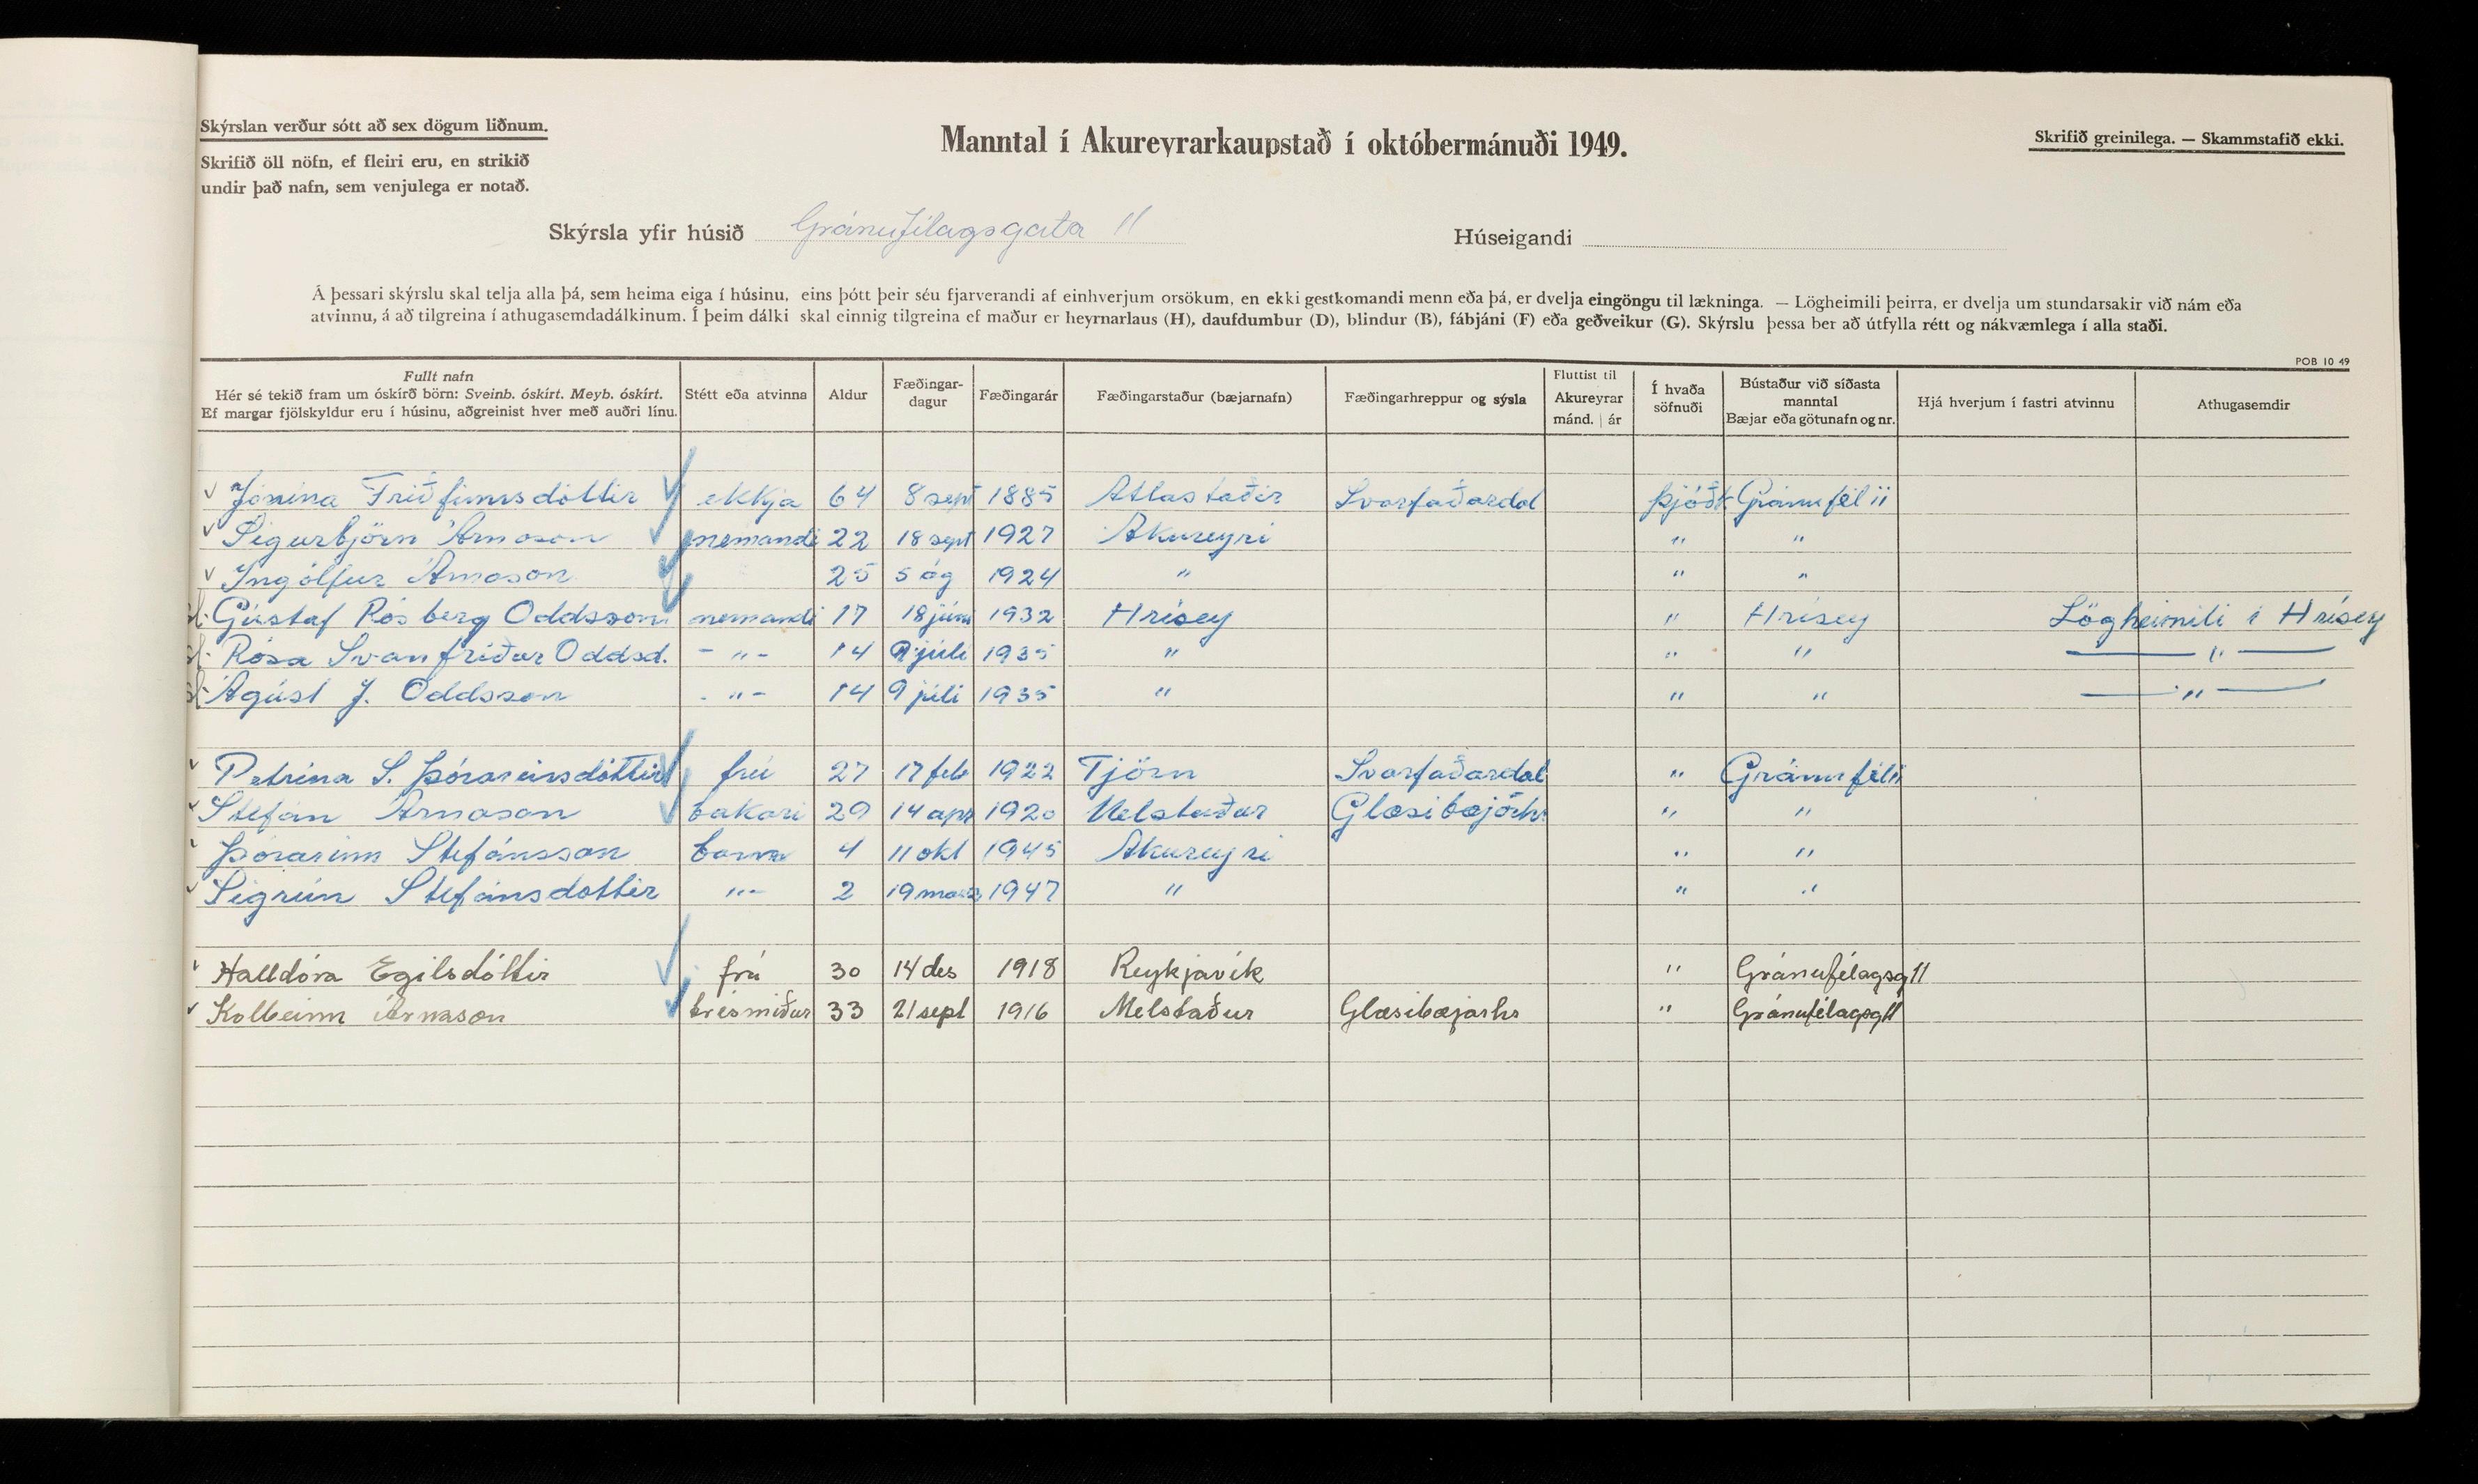 Skýrslan verður sótt að sex dögum liðnum.
Skrifið öll nöfn, ef fleiri eru, en strikið
undir það nafn, sem venjulega er notað.
Manntal í Akureyrarkaupstað í októbermánuði 1949.
Skrifið greinilega. — Skammstafið ekki.
Skýrsla yfir húsið Gránufélagsgata 11
Húseigandi
Á þessari skýrslu skal telja alla þá, sem heima eiga í húsinu, eins þótt þeir séu fjarverandi af einhverjum orsökum, en ekki gestkomandi menn eða þá, er dvelja eingöngu til lækninga. — Lögheimili þeirra, er dvelja um stundarsakir við nám eða
atvinnu, á að tilgreina í athugasemdadálkinum. Í þeim dálki skal einnig tilgreina ef maður er heyrnarlaus (H), daufdumbur (D), blindur (B), fábjáni (F) eða geðveikur (G). Skýrslu þessa ber að útfylla rétt og nákvæmlega í alla staði.
POB 10 49
Fullt nafn
Hér sé tekið fram um óskírð börn: Sveinb. óskírt. Meyb. óskírt.
Ef margar fjölskyldur eru í húsinu, aðgreinist hver með auðri línu.
Stétt eða atvinna
Aldur
Fæðingar-
dagur
Fæðingarár
Fæðingarstaður (bæjarnafn)
Fæðingarhreppur og sýsla
Fluttist til
Akureyrar
mánd. | ár
Í hvaða
söfnuði
Bústaður við síðasta
manntal
Bæjar eða götunafn og nr.
Hjá hverjum í fastri atvinnu
Athugasemdir
Jónína Friðfinnsdóttir ekkja 64 8 sept 1885 Atlastaðir Svarfaðardal Þjóðk Gránufél 11
Sigurbjörn Árnason nemandi 22 18 sept 1927 Akureyri " "
Ingólfur Árnason 25 5 ág 1924 " " "
Gústaf Rósberg Oddsson nemandi 17 18 júní 1932 Hrísey " Hrísey Lögheimili í Hrísey
Rósa Svanfríður Oddsd. - " - 14 9 júlí 1935 " " " — " —
Ágúst J. Oddsson - " - 14 9 júlí 1935 " " " — " —
Petrína S. Þórarinsdóttir frú 27 17 feb 1922 Tjörn Svarfaðardal " Gránufél 11
Stefán Árnason bakari 29 14 apr 1920 Melstaður Glæsibæjarhr " "
Þórarinn Stefánsson barn 4 11 okt 1945 Akureyri " "
Sigrún Stefánsdóttir " - 2 19 mars 1947 " " "
Halldóra Egilsdóttir frú 30 14 des 1918 Reykjavík " Gránufélagsg 11
Kolbeinn Árnason trésmiður 33 21 sept 1916 Melstaður Glæsibæjarhr " Gránufélagsg 11